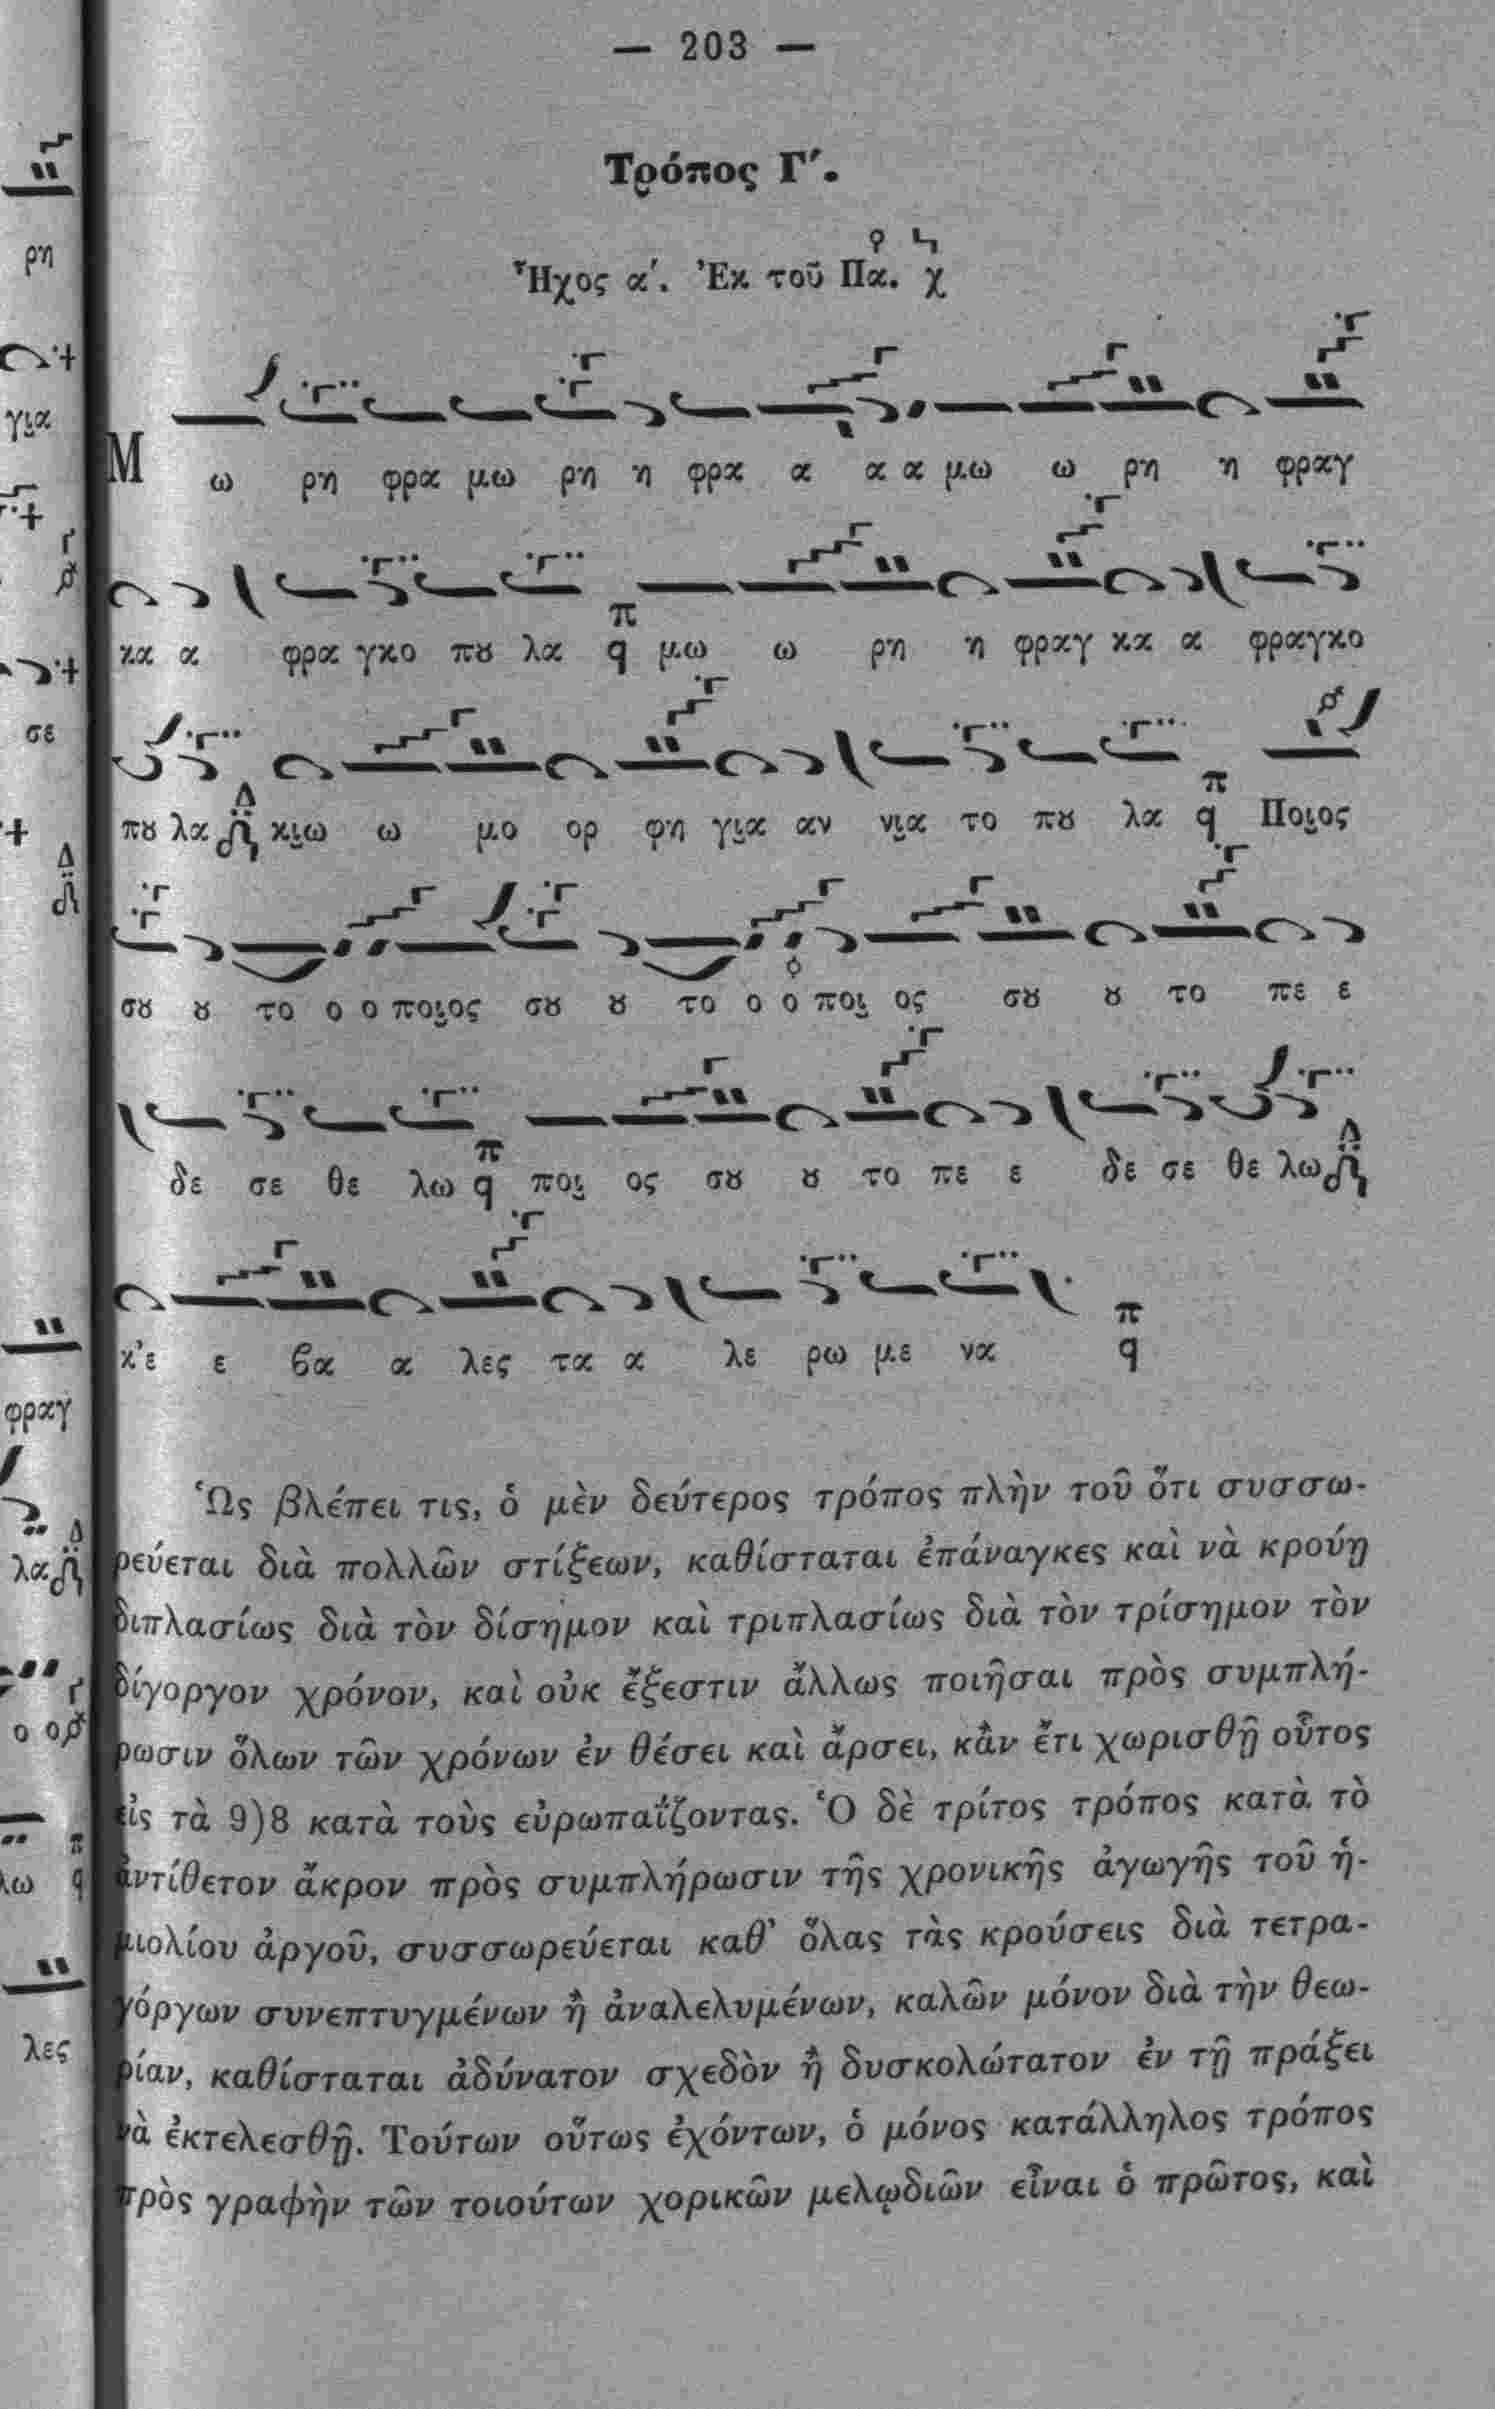 — 203 —
Τρόπος Γ΄.
Ἦχος α΄. Ἐκ τοῦ Πα. χ
Μ ω ρη φρα μω ρη η φρα α α α μω ω ρη η φραγ
κα α φρα γκο πȣ λα π q μω ω ρη η φραγ κα α φραγκο
πȣ λα Δ κιω ω μο ορ φη για αν νια το πȣ λα π q Ποιος
σȣ ȣ το ο ο ποιος σȣ ȣ το ο ο ποι ος σȣ ȣ το πε ε
δε σε θε λω π q ποι ος σȣ ȣ το πε ε δε σε θε λω Δ
κ’ε ε βα α λες τα α λε ρω με να π q
Ὡς βλέπει τις, ὁ μὲν δεύτερος τρόπος πλὴν τοῦ ὅτι συσσω-
ρεύεται διὰ πολλῶν στίξεων, καθίσταται ἐπάναγκες καὶ νὰ κρούῃ
διπλασίως διὰ τὸν δίσημον καὶ τριπλασίως διὰ τὸν τρίσημον τὸν
δίγοργον χρόνον, καὶ οὐκ ἔξεστιν ἄλλως ποιῆσαι πρὸς συμπλή-
ρωσιν ὅλων τῶν χρόνων ἐν θέσει καὶ ἄρσει, κἂν ἔτι χωρισθῇ οὗτος
εἰς τὰ 9)8 κατὰ τοὺς εὐρωπαΐζοντας. Ὁ δὲ τρίτος τρόπος κατὰ τὸ
ἀντίθετον ἄκρον πρὸς συμπλήρωσιν τῆς χρονικῆς ἀγωγῆς τοῦ ἡ-
μιολίου ἀργοῦ, συσσωρεύεται καθ’ ὅλας τὰς κρούσεις διὰ τετρα-
γόργων συνεπτυγμένων ἢ ἀναλελυμένων, καλῶν μόνον διὰ τὴν θεω-
ρίαν, καθίσταται ἀδύνατον σχεδὸν ἢ δυσκολώτατον ἐν τῇ πράξει
νὰ ἐκτελεσθῇ. Τούτων οὕτως ἐχόντων, ὁ μόνος κατάλληλος τρόπος
πρὸς γραφὴν τῶν τοιούτων χορικῶν μελῳδιῶν εἶναι ὁ πρῶτος, καὶ